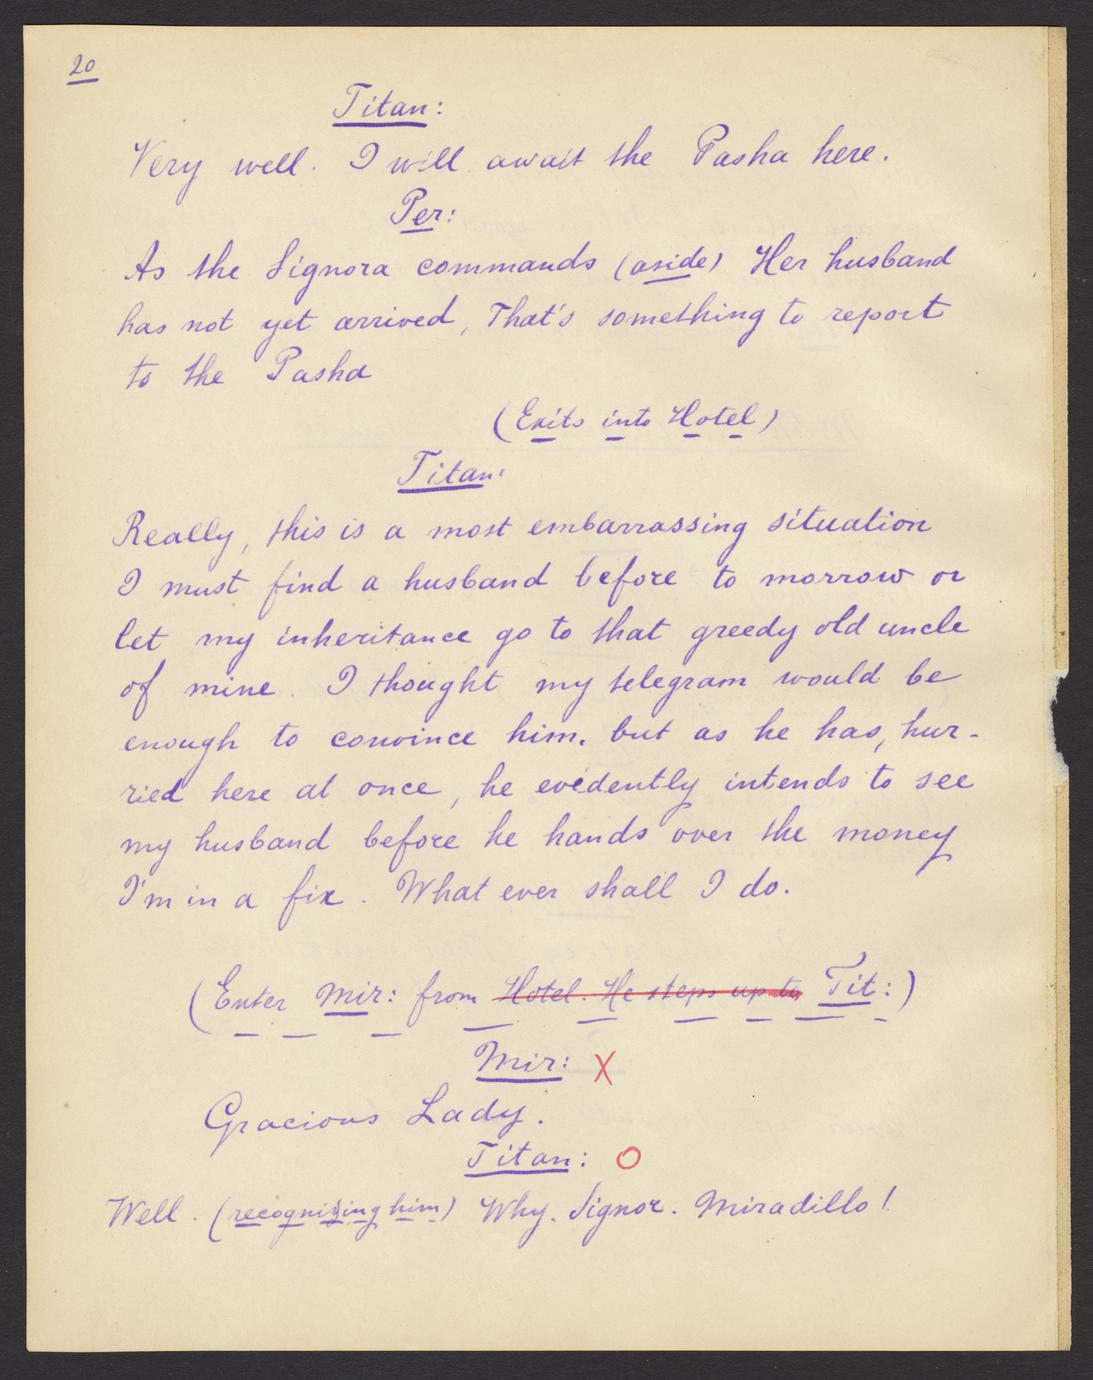 20
Titan:
Very well. I will await the Pasha here.
Per:
As the Signora commands (aside) Her husband
has not yet arrived, That's something to report
to the Pasha
(Exits into Hotel)
Titan:
Really, this is a most embarrassing situation
I must find a husband before to morrow or
let my inheritance go to that greedy old uncle
of mine. I thought my telegram would be
enough to convince him. but as he has, hur-
ried here at once, he evedently intends to see
my husband before he hands over the money
I'm in a fix. What ever shall I do.
(Enter Mir: from Hotel. He steps up to Tit:)
Mir: X
Gracious Lady.
Titan: O
Well. (recognizing him) Why. Signor. Miradillo!